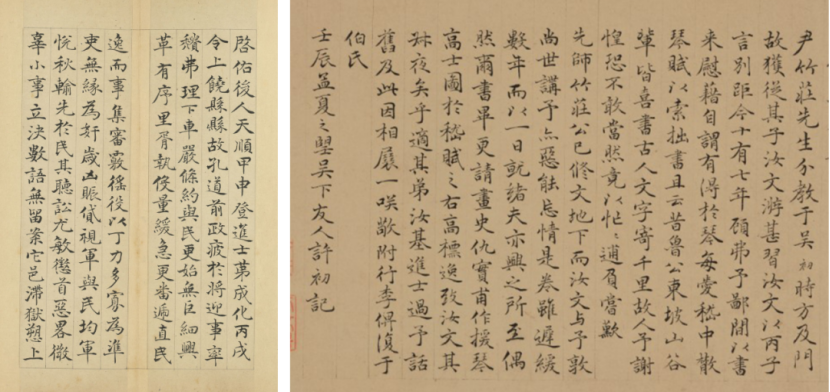 啓佑後人天順甲申登進士第成化丙戌
令上饒縣縣故孔道前政疲於將迎事率
積弗理下車嚴條約與民更始無巨細興
革有序里胥執役量緩急更番遞直民
逸而事集審覈徭役以丁力多寡為準
吏無緣為奸歲凶賑貸視軍與民均軍
悅秋翰先於民其聽訟尤敏懲首惡畧微
辜小事立決數語無留案它邑滯獄愬上
尹竹莊先生分教于吳初時方及門
故獲從其子汝文游甚習汝文以丙子
言別距今十有七年顧弗予鄙閒以書
来慰藉自謂有得於琴每愛嵇中散
琴賦以索拙書且云昔魯公東坡山谷
輩皆喜書古人文字寄千里故人予謝
惶恐不敢當然竟以忙忙逋負嘗歉
先師竹莊公已修文地下而汝文与予敦
尚世講予亦惡能忘情是卷雖遲緩
數年而以一日就緒夫亦興之所至偶
然爾書畢更請畫史仇實甫作援琴
高士圖於嵇賦之右高標逸致汝文其
夜矣乎適其弟汝基進士過予話
舊及此因相展一咲敬附行李俾復于
伯氏
壬辰孟夏之朢吳下友人許初記